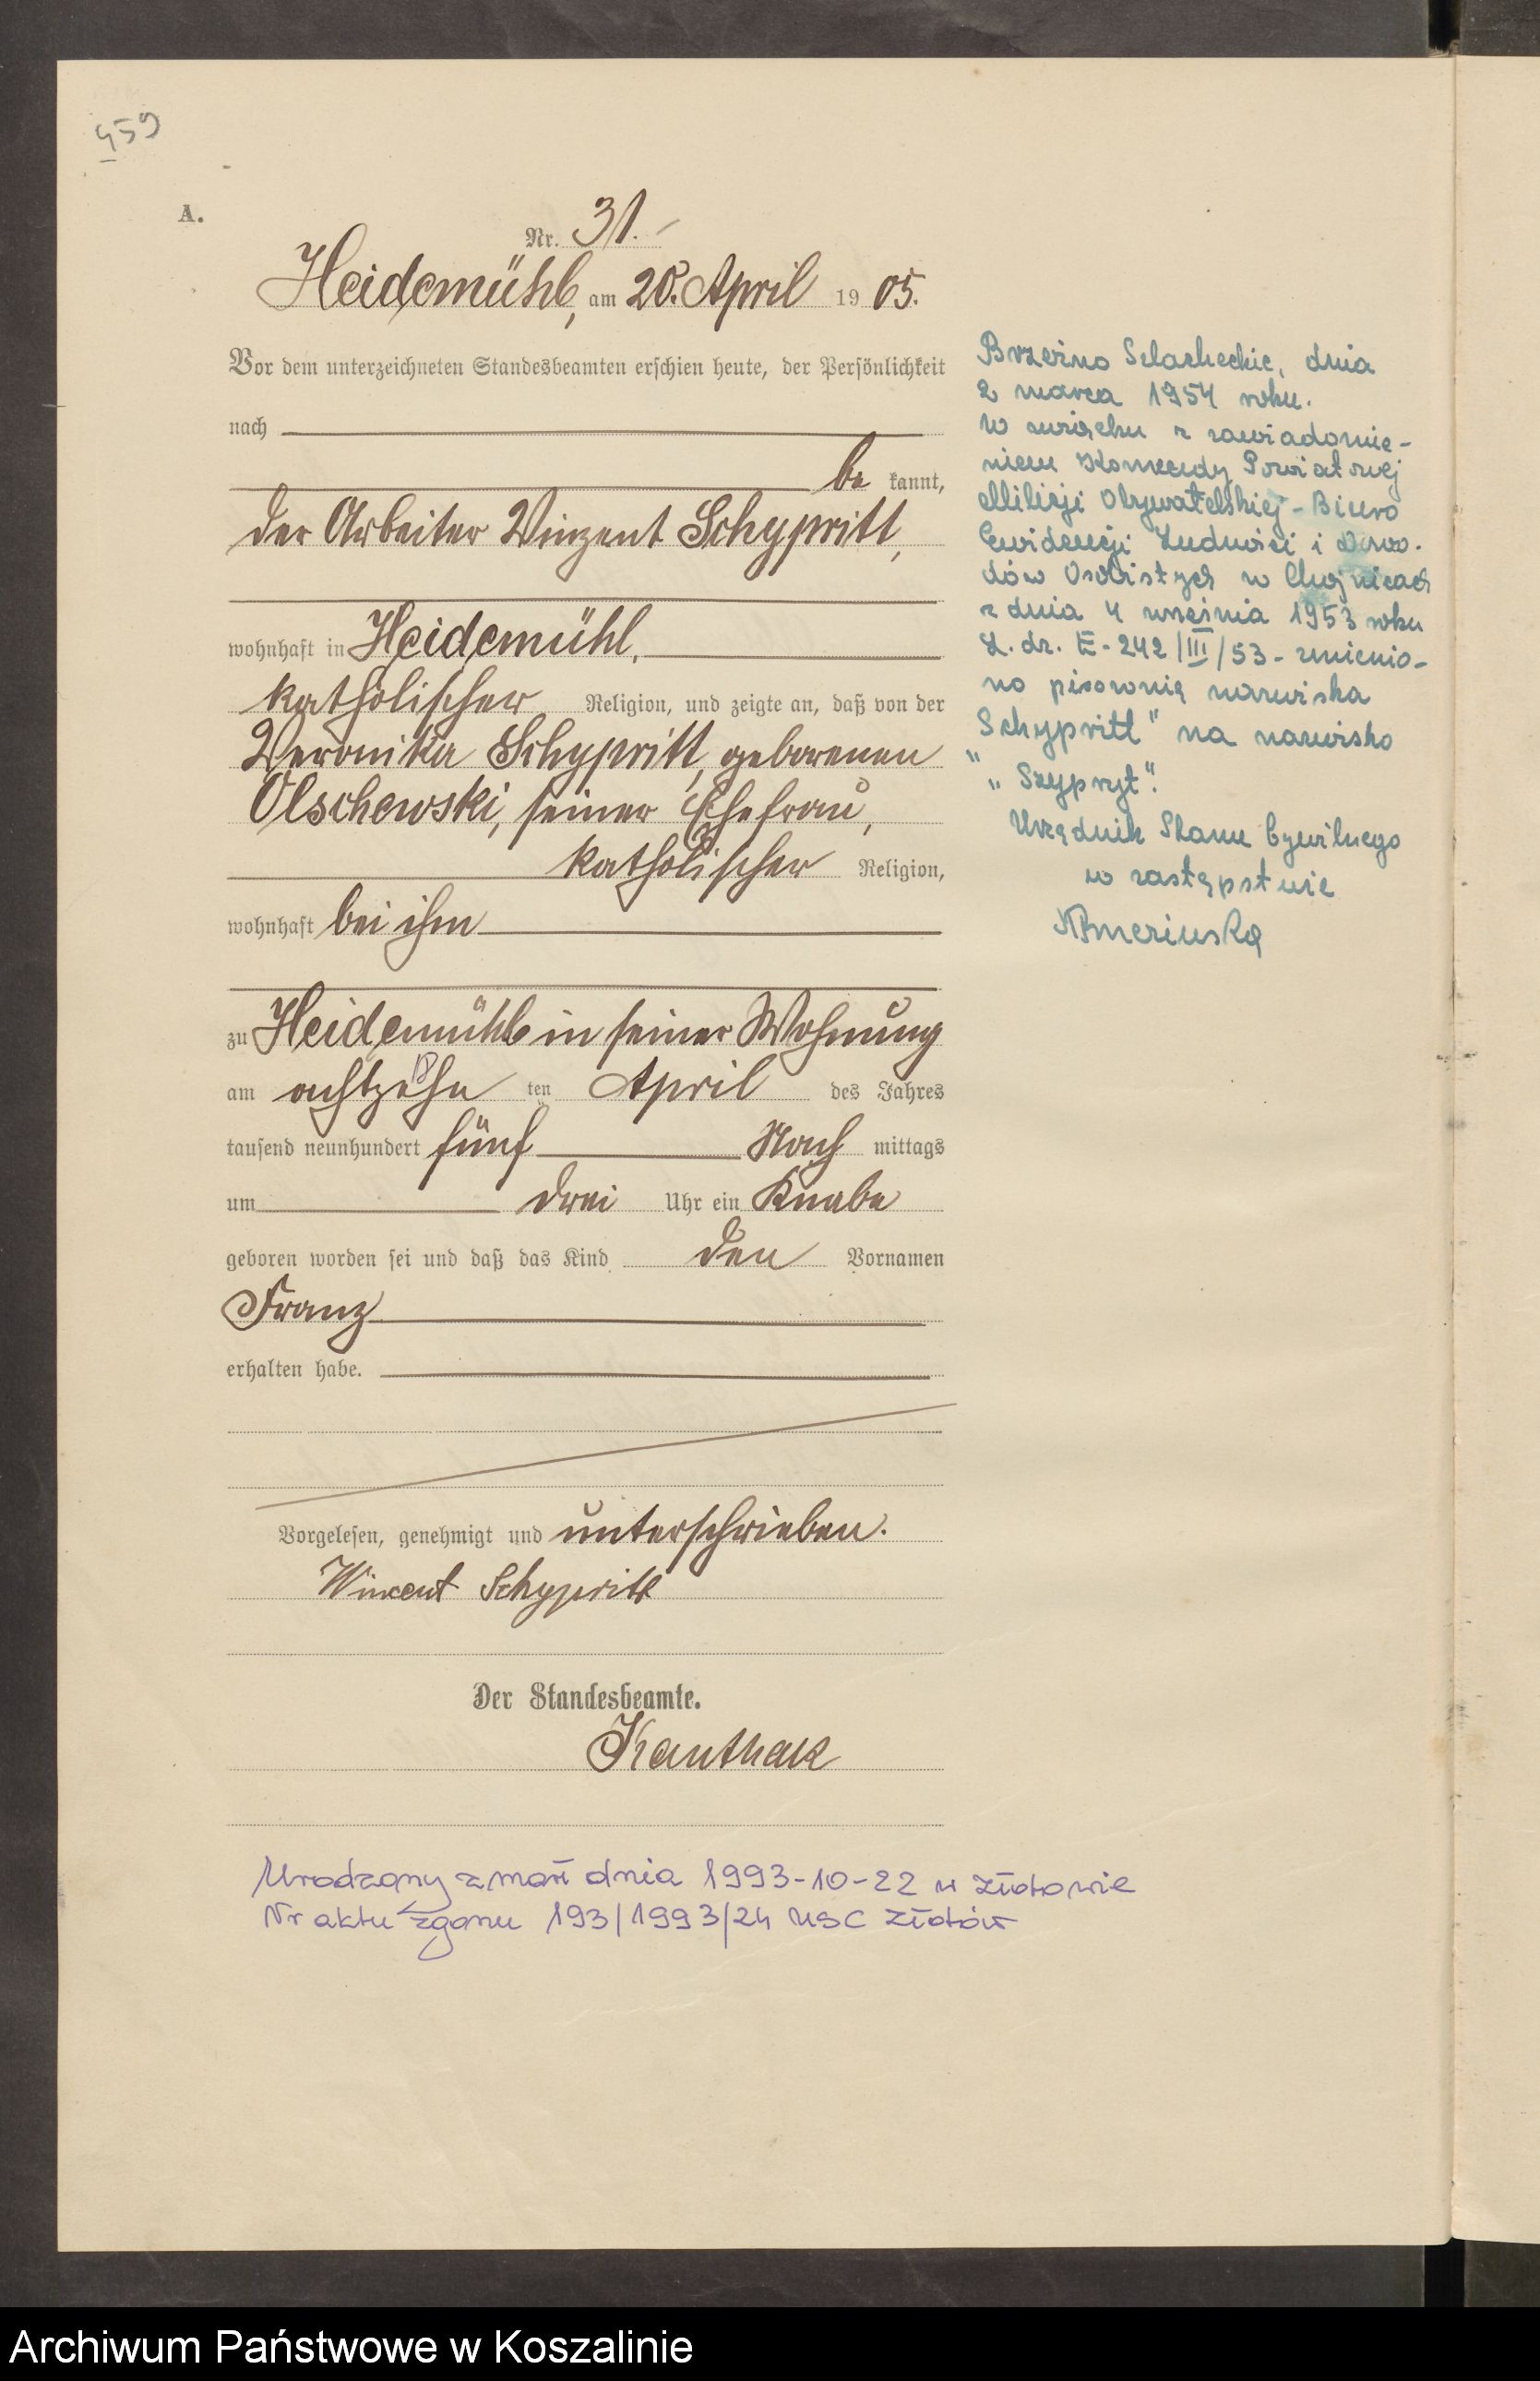 459
A.
Nr. 31.
Heidemühl, am 20. April 1905.
Vor dem unterzeichneten Standesbeamten erschien heute, der Persönlichkeit
nach
be kannt,
der Arbeiter Vinzent Schypritt,
wohnhaft in Heidemühl,
katholischer Religion, und zeigte an, daß von der
Veronika Schypritt, geborenen
Olschewski, seiner Ehefrau,
katholischer Religion,
wohnhaft bei ihm
zu Heidemühl in seiner Wohnung
am achtzehn ten April des Jahres
tausend neunhundert fünf Nach mittags
um drei Uhr ein Knabe
geboren worden sei und daß das Kind den Vornamen
Franz
erhalten habe.
Vorgelesen, genehmigt und unterschrieben.
Wincent Schypritt
Der Standesbeamte.
Kanthak
Brzeźno Szlacheckie, dnia
2 marca 1954 roku.
W związku z zawiadomie-
niem Komendy Powiatowej
Milicji Obywatelskiej - Biuro
Ewidencji Ludności i Dowo-
dów Osobistych w Chojnicach
z dnia 4 września 1953 roku
L. dz. E-242/III/53 - zmienio-
no pisownię nazwiska
"Schypritt" na nazwisko
"Szypryt".
Urzędnik Stanu Cywilnego
w zastępstwie
Urodzony zmarł dnia 1993-10-22 w Złotowie
Nr aktu zgonu 193/1993/24 USC Złotów
Archiwum Państwowe w Koszalinie